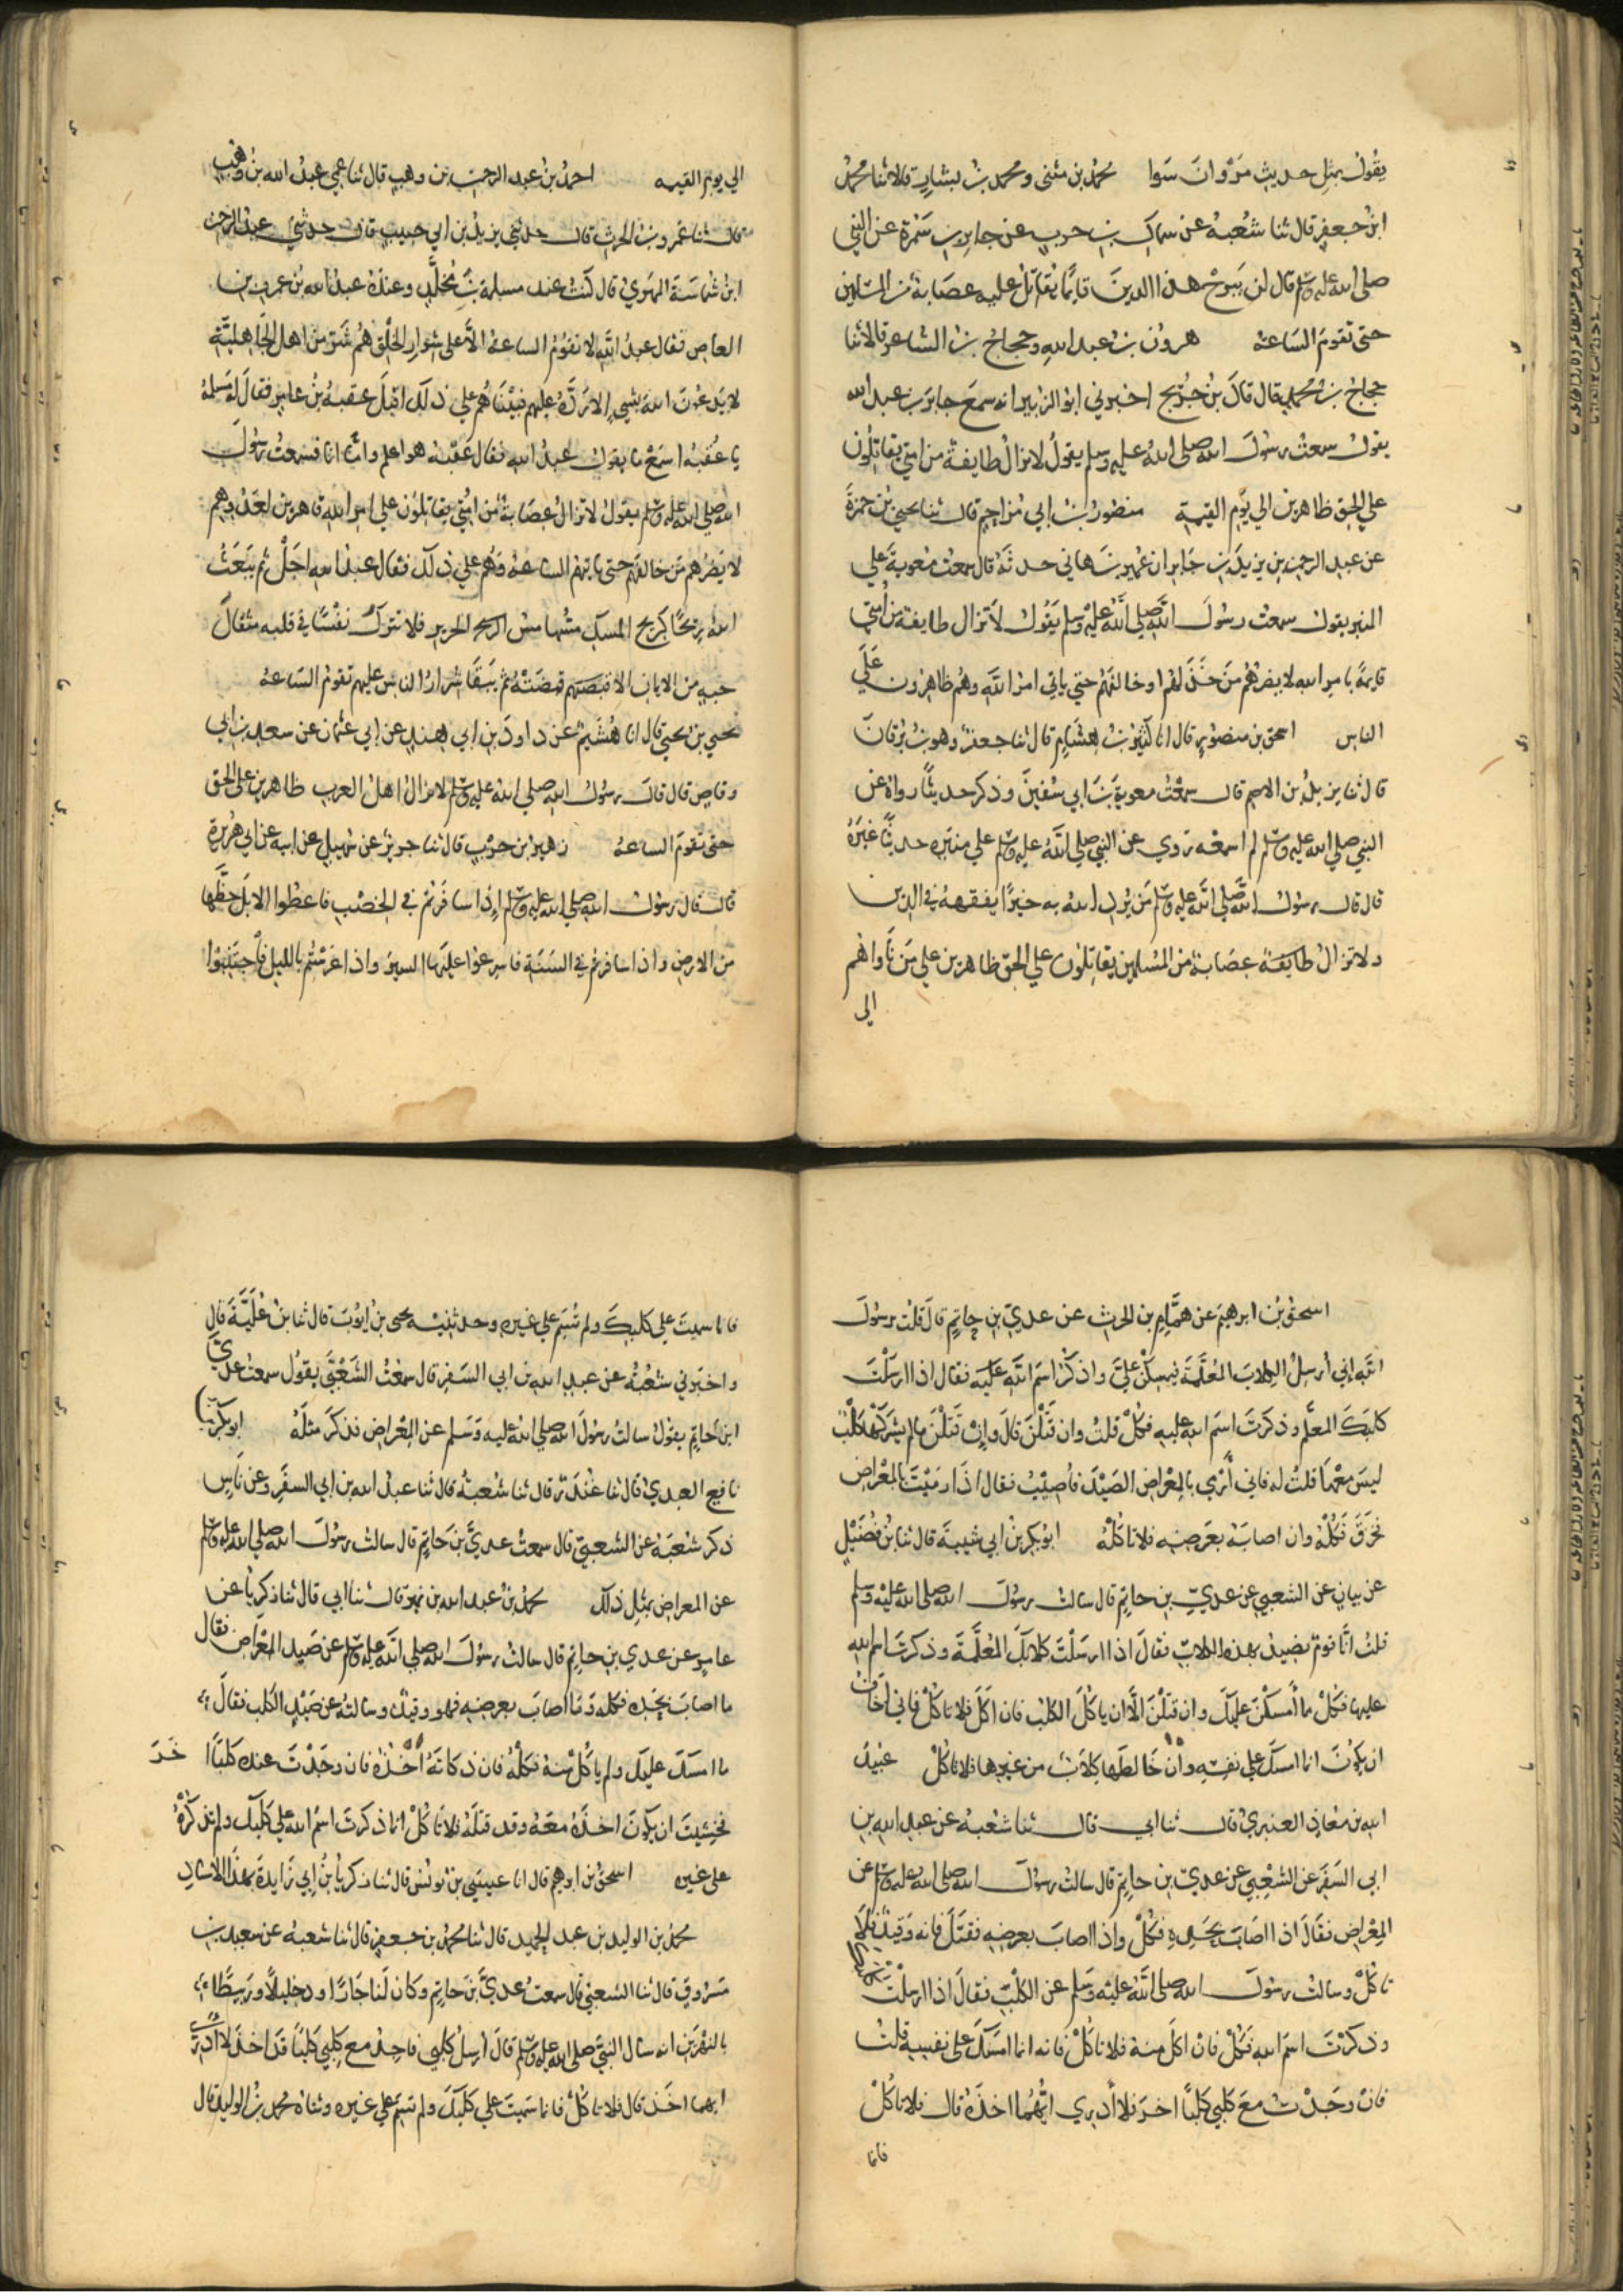 يقول بمثل حديث مروان سوا محمد بن مثنى ومحمد بن بشار قالا ثنا محمد
ابن جعفر قال ثنا شعبة عن سماك بن حرب عن جابر بن سمرة عن النبي
صلى الله عليه وسلم قال لن يبرح هذا الدين قايما يقاتل عليه عصابة من المسلمين
حتى تقوم الساعة هرون بن عبد الله وحجاج بن الشاعر قالا ثنا
حجاج بن محمد قال قال بن جريج اخبرني ابو الزبير انه سمع جابر بن عبد الله
يقول سمعت رسول الله صلى الله عليه وسلم يقول لا تزال طايفة من امتي يقاتلون
على الحق ظاهرين الى يوم القيمة منصور بن ابي مزاحم قال ثنا يحيى بن حمزة
عن عبد الرحمن بن يزيد بن جابر ان عمير بن هاني حدثه قال سمعت معوية على
المنبر يقول سمعت رسول الله صلى الله عليه وسلم يقول لا تزال طايفة من امتي
قايمة بامر الله لا يضرهم من خذلهم او خالفهم حتى ياتي امر الله وهم ظاهرون على
الناس اسحق بن منصور قال انا كثير بن هشام قال ثنا جعفر وهو بن برقان
قال ثنا يزيد بن الاصم قال سمعت معوية بن ابي سفين وذكر حديثا رواه عن
النبي صلى الله عليه وسلم لم اسمعه روي عن النبي صلى الله عليه وسلم على منبره حديثا غيره
قال قال رسول الله صلى الله عليه وسلم من يرد الله به خيرا يفقهه في الدين
ولا تزال طايفة عصابة من المسلمين يقاتلون على الحق ظاهرين على من ناواهم
الى
الي يوم القيمه احمد بن عبد الرحمن بن وهب قال ثنا عمي عبد الله بن وهب
قال ثنا عمرو بن الحرث قال حدثني يزيد بن ابي حبيب قال حدثني عبد الرحمن
ابن شماسة المهري قال كنت عند مسلمة بن مخلد وعنده عبد الله بن عمرو بن
العاص فقال عبد الله لا تقوم الساعة الا على شرار الخلق هم شر من اهل الجاهلية
لا يدعون الله بشي الا رده عليهم فبينا هم على ذلك اقبل عقبة بن عامر فقال له مسلمة
يا عقبة اسمع ما يقول عبد الله فقال عقبة هو اعلم واما انا فسمعت رسول
الله صلى الله عليه وسلم يقول لا تزال عصابة من امتي يقاتلون على امر الله قاهرين لعدوهم
لا يضرهم من خالفهم حتى تاتيهم الساعة وهم على ذلك فقال عبد الله اجل ثم يبعث
الله ريحا كريح المسك مسها مس الحرير فلا تترك نفسا في قلبه مثقال
حبه من الايمان الا قبضته ثم يبقا شرار الناس عليهم تقوم الساعة
يحيى بن يحيى قال انا هشيم عن داود بن ابي هند عن ابي عثمان عن سعد بن ابي
وقاص قال قال رسول الله صلى الله عليه وسلم لا يزال اهل الغرب ظاهرين على الحق
حتى تقوم الساعة زهير بن حرب قال ثنا جرير عن سهيل عن ابيه عن ابي هريرة
قال قال رسول الله صلى الله عليه وسلم اذا سافرتم في الخصب فاعطوا الابل حظها
من الارض واذا سافرتم في السنة فاسرعوا عليها السير واذا عرستم بالليل فاجتنبوا
اسحق بن ابرهيم عن همام بن الحرث عن عدي بن حاتم قال قلت رسول
الله اني ارسل الكلاب المعلمة فيمسكن علي واذكر اسم الله عليه فقال اذا ارسلت
كلبك المعلم وذكرت اسم الله عليه فكل قلت وان قتلن قال وان قتلن ما لم يشركها كلب
ليس معها قلت له فاني ارمي بالمعراض الصيد فاصيب فقال اذا رميت بالمعراض
فخزق فكله وان اصابه بعرضه فلا تاكله ابو بكر بن ابي شيبة قال ثنا بن فضيل
عن بيان عن الشعبي عن عدي بن حاتم قال سالت رسول الله صلى الله عليه وسلم
قلت انا قوم نصيد بهذه الكلاب فقال اذا ارسلت كلابك المعلمة وذكرت اسم الله
عليها فكل مما امسكن عليك وان قتلن الا ان ياكل الكلب فان اكل فلا تاكل فاني اخاف
ان يكون انما امسك على نفسه وان خالطها كلاب من غيرها فلا تاكل عبيد
الله بن معاذ العنبري قال ثنا ابي قال ثنا شعبة عن عبد الله بن
ابي السفر عن الشعبي عن عدي بن حاتم قال سالت رسول الله صلى الله عليه وسلم عن
المعراض فقال اذا اصاب بحده فكل واذا اصاب بعرضه فقتل فانه وقيذ فلا
تاكل وسالت رسول الله صلى الله عليه وسلم عن الكلب فقال اذا ارسلت كلبك
وذكرت اسم الله فكل فان اكل منه فلا تاكل فانه انما امسك على نفسه قلت
فان وجدت مع كلبي كلبا اخر فلا ادري ايهما اخذه قال فلا تاكل
فانما
فانما سميت على كلبك ولم تسم على غيره وحدثنيه يحيى بن ايوب قال ثنا بن علية قال
واخبرني شعبة عن عبد الله بن ابي السفر قال سمعت الشعبي يقول سمعت عدي
ابن حاتم يقول سالت رسول الله صلى الله عليه وسلم عن المعراض فذكر مثله ابو بكر بن
نافع العبدي قال ثنا غندر قال ثنا شعبة قال ثنا عبد الله بن ابي السفر وعن ناس
ذكر شعبة عن الشعبي قال سمعت عدي بن حاتم قال سالت رسول الله صلى الله عليه وسلم
عن المعراض بمثل ذلك محمد بن عبد الله بن نمير قال ثنا ابي قال ثنا زكريا عن
عامر عن عدي بن حاتم قال سالت رسول الله صلى الله عليه وسلم عن صيد المعراض فقال
ما اصاب بحده فكله وما اصاب بعرضه فهو وقيذ وسالته عن صيد الكلب فقال
ما امسك عليك ولم ياكل منه فكله فان ذكاته اخذه فان وجدت عنده كلبا اخر
فخشيت ان يكون اخذه معه وقد قتله فلا تاكل انما ذكرت اسم الله على كلبك ولم تذكره
على غيره اسحق بن ابرهيم قال انا عيسى بن يونس قال ثنا زكريا بن ابي زايدة بهذا الاسناد
محمد بن الوليد بن عبد الحميد قال ثنا محمد بن جعفر قال ثنا شعبة عن سعيد بن
مسروق قال ثنا الشعبي قال سمعت عدي بن حاتم وكان لنا جارا ودخيلا وربيطا
بالنهرين انه سال النبي صلى الله عليه وسلم قال ارسل كلبي فاجد مع كلبي كلبا قد اخذ لا ادري
ايهما اخذ قال فلا تاكل فانما سميت على كلبك ولم تسم على غيره وثناه محمد بن الوليد قال